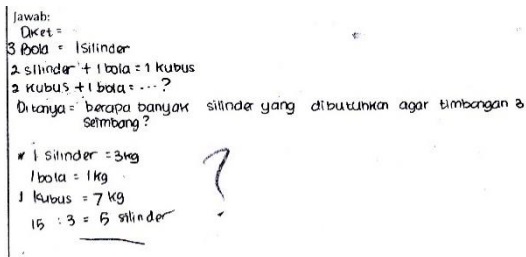 Jawab:
Diket =
3 Bola = 1 Silinder
2 silinder + 1 bola = 1 kubus
2 kubus + 1 bola = ... ?
Ditanya = berapa banyak silinder yang dibutuhkan agar timbangan 3
seimbang?
* 1 silinder = 3kg
1 bola = 1kg
1 kubus = 7 kg
15 : 3 = 5 silinder
?